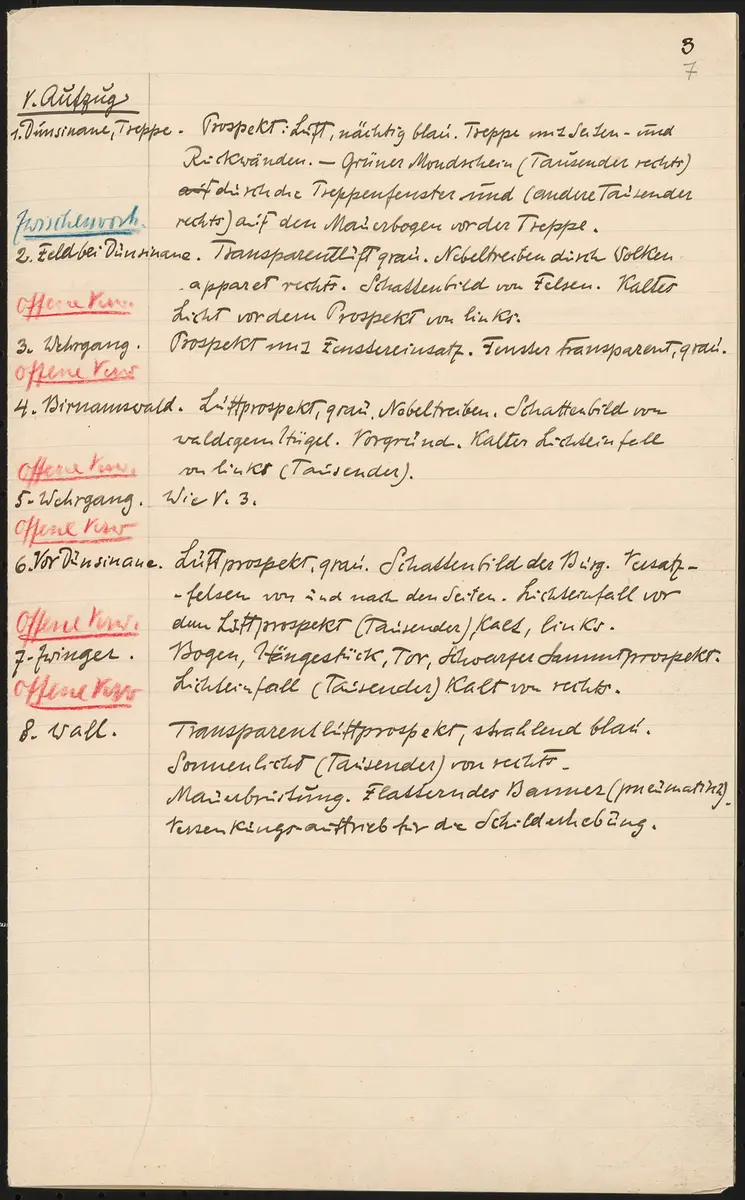 3
7
V. Aufzug
1. Dunsinane, Treppe. Prospekt: Luft, nächtig blau. Treppe mit Seiten- und
Rückwänden. — Grüner Mondschein (Tausender rechts)
auf durch die Treppenfenster und (andere Tausender
Zwischenvorh. rechts) auf den Mauerbogen vor der Treppe.
2. Feld bei Dunsinane. Transparentluft grau. Nebeltreiben durch Wolken-
apparat rechts. Schattenbild von Felsen. Kaltes
Offene Verw. Licht vor dem Prospekt von links.
3. Wehrgang. Prospekt mit Fenstereinsatz. Fenster transparent, grau.
Offene Verw
4. Birnamswald. Luftprospekt, grau. Nebeltreiben. Schattenbild von
waldigem Hügel. Vorgrund. Kalter Lichteinfall
Offene Verw. von links (Tausender).
5. Wehrgang. Wie V. 3.
Offene Verw
6. Vor Dunsinane. Luftprospekt, grau. Schattenbild der Burg. Versatz-
-felsen von und nach den Seiten. Lichteinfall vor
Offene Verw. dem Luftprospekt (Tausender), Kalt, links.
7. Zwinger. Bogen, Hängestück, Tor, Schwarzer Sammtprospekt.
Offene Verw Lichteinfall (Tausender) Kalt von rechts.
8. Wall. Transparentluftprospekt, strahlend blau.
Sonnenlicht (Tausender) von rechts.
Mauerbrüstung. Flatterndes Banner (pneumatisch).
Versenkungsauftrieb für die Schilderhebung.